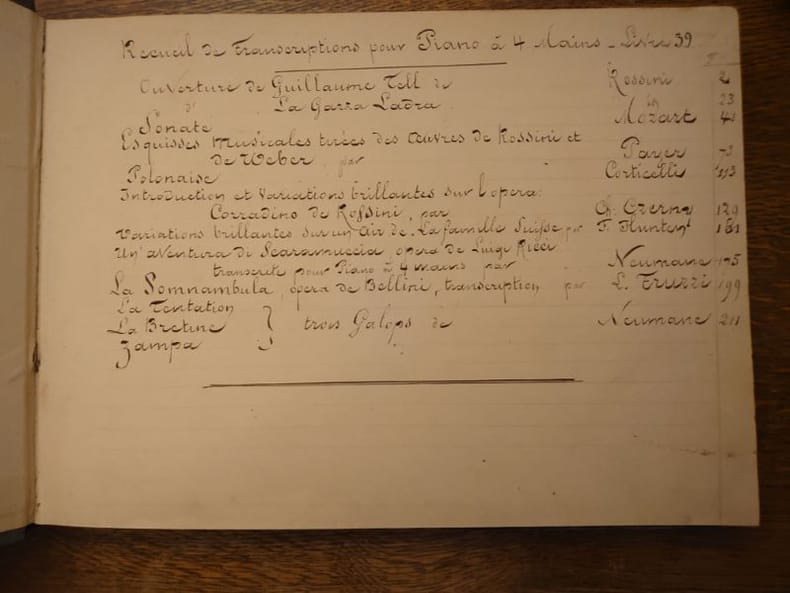 Recueil de Transcriptions pour Piano à 4 Mains - Livre 39
Ouverture de Guillaume Tell de Rossini 2
d° La Gazza Ladra 23
Sonate Mozart 41
Esquisses Musicales tirées des Œuvres de Rossini et
de Weber par Payer 73
Polonaise Corticelli 113
Introduction et Variations brillantes sur l'opera:
Corradino de Rossini, par Ch. Czerny 129
Variations brillantes sur un Air de La famille Suisse par F. Hunten 161
Un' aventura di Scaramuccia opera de Luigi Ricci
transcrite pour Piano à 4 mains par Neumane 175
La Somnambula, opera de Bellini, transcription par L. Truzzi 199
La Tentation
La Bretine } trois Galops de Neumane 211
Zampa